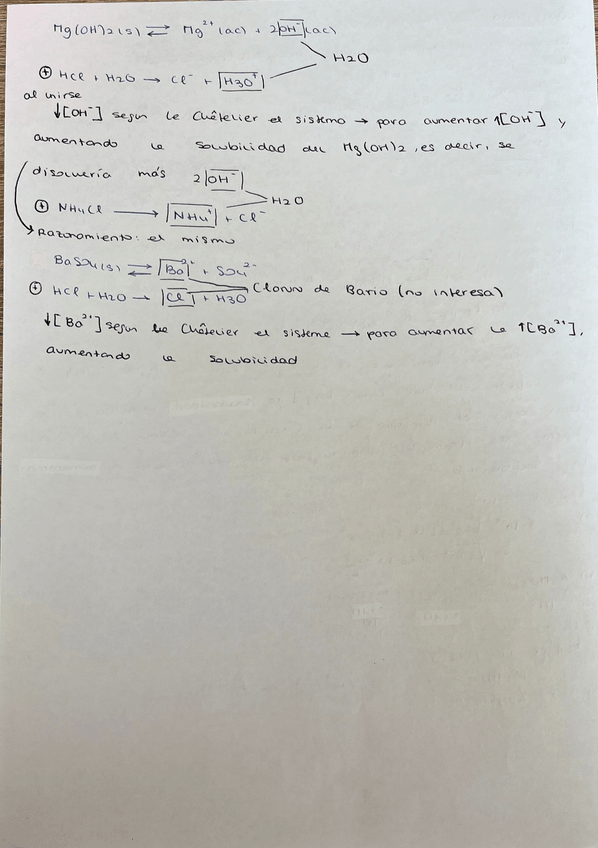 Mg(OH)2(s) ⇌ Mg2+ (ac) + 2 OH- (ac)
H2O
⊕ HCl + H2O → Cl- + H3O+
al unirse
↓[OH-] según Le Châtelier el sistema → para aumentar ↑[OH-] y
aumentando la solubilidad del Mg(OH)2, es decir, se
disolvería más 2 OH-
H2O
⊕ NH4Cl → NH4+ + Cl-
Razonamiento: el mismo
BaSO4(s) ⇌ Ba2+ + SO42-
⊕ HCl + H2O → Cl- + H3O Cloruro de Bario (no interesa)
↓[Ba2+] según Le Châtelier el sistema → para aumentar la ↑[Ba2+],
aumentando la solubilidad